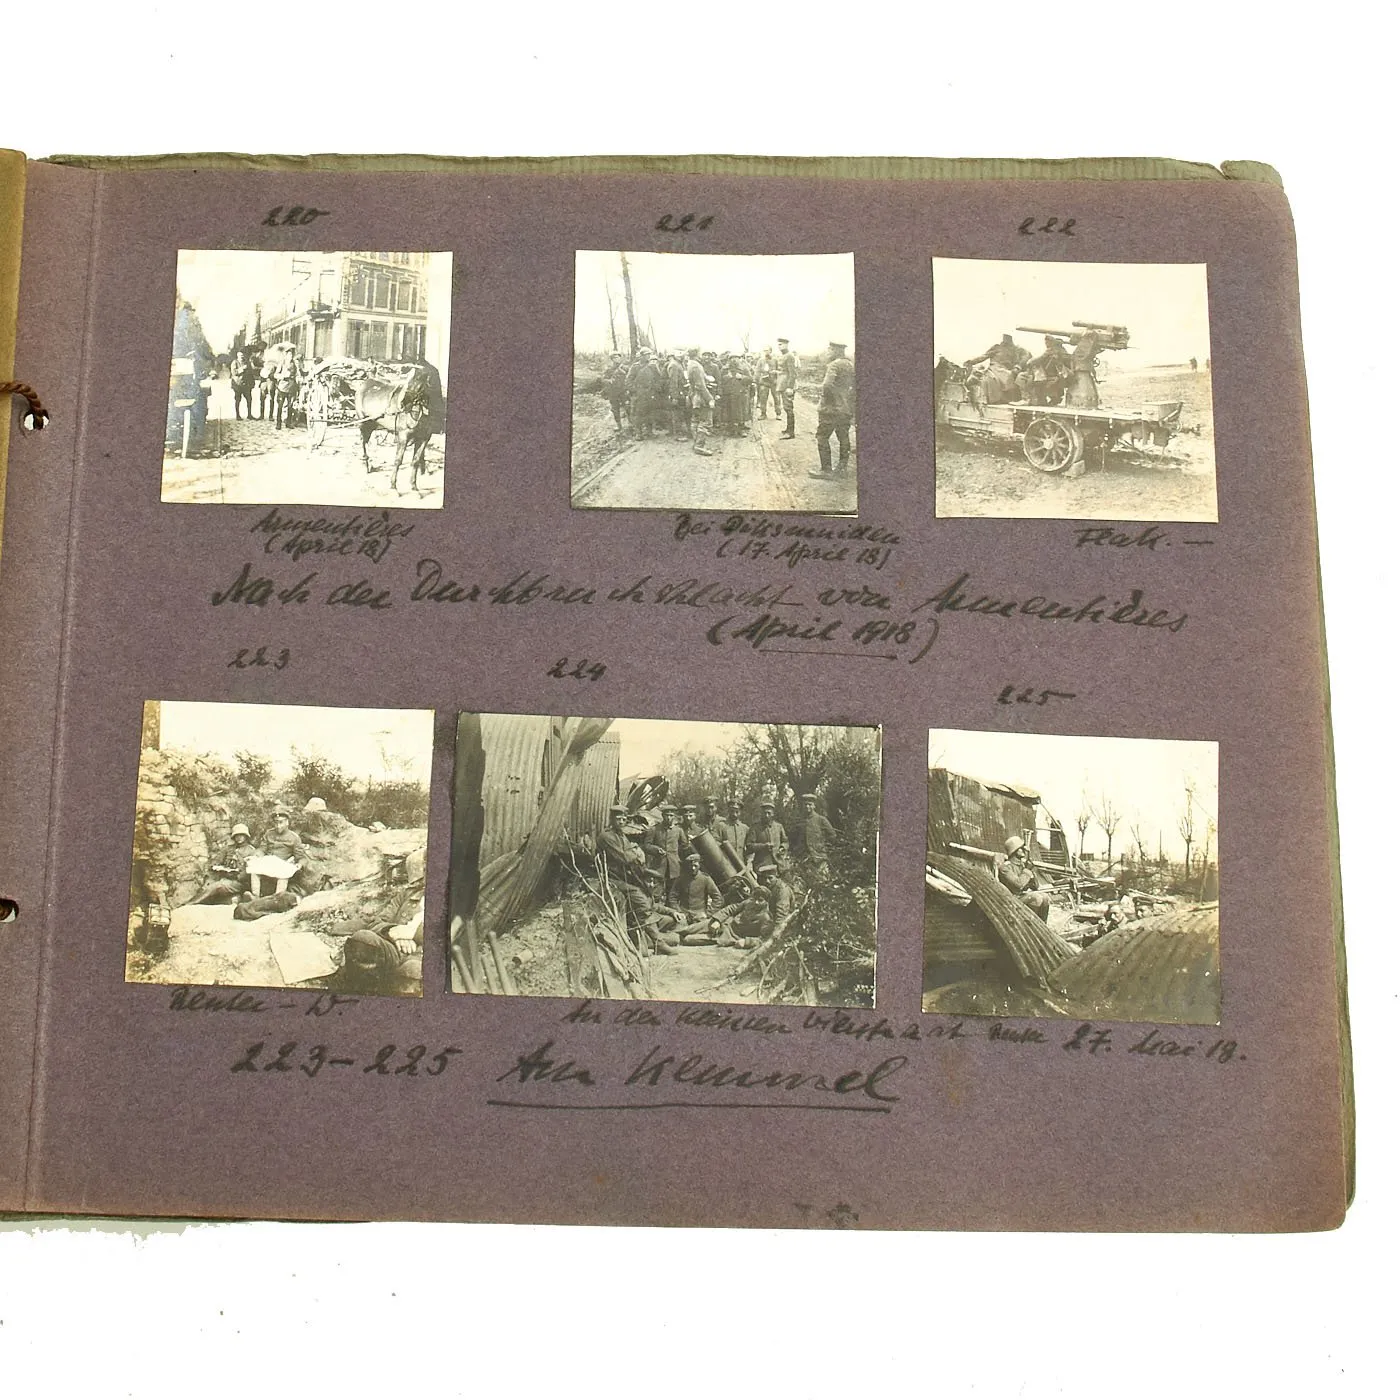 220
221
222
Armentières
(April 18)
Bei Dixmuiden
(17. April 18)
Flak. —
Nach der Durchbruchschlacht von Armentières
(April 1918)
223
224
225
An der kleinen 27. Mai 18.
223–225 Am Kemmel